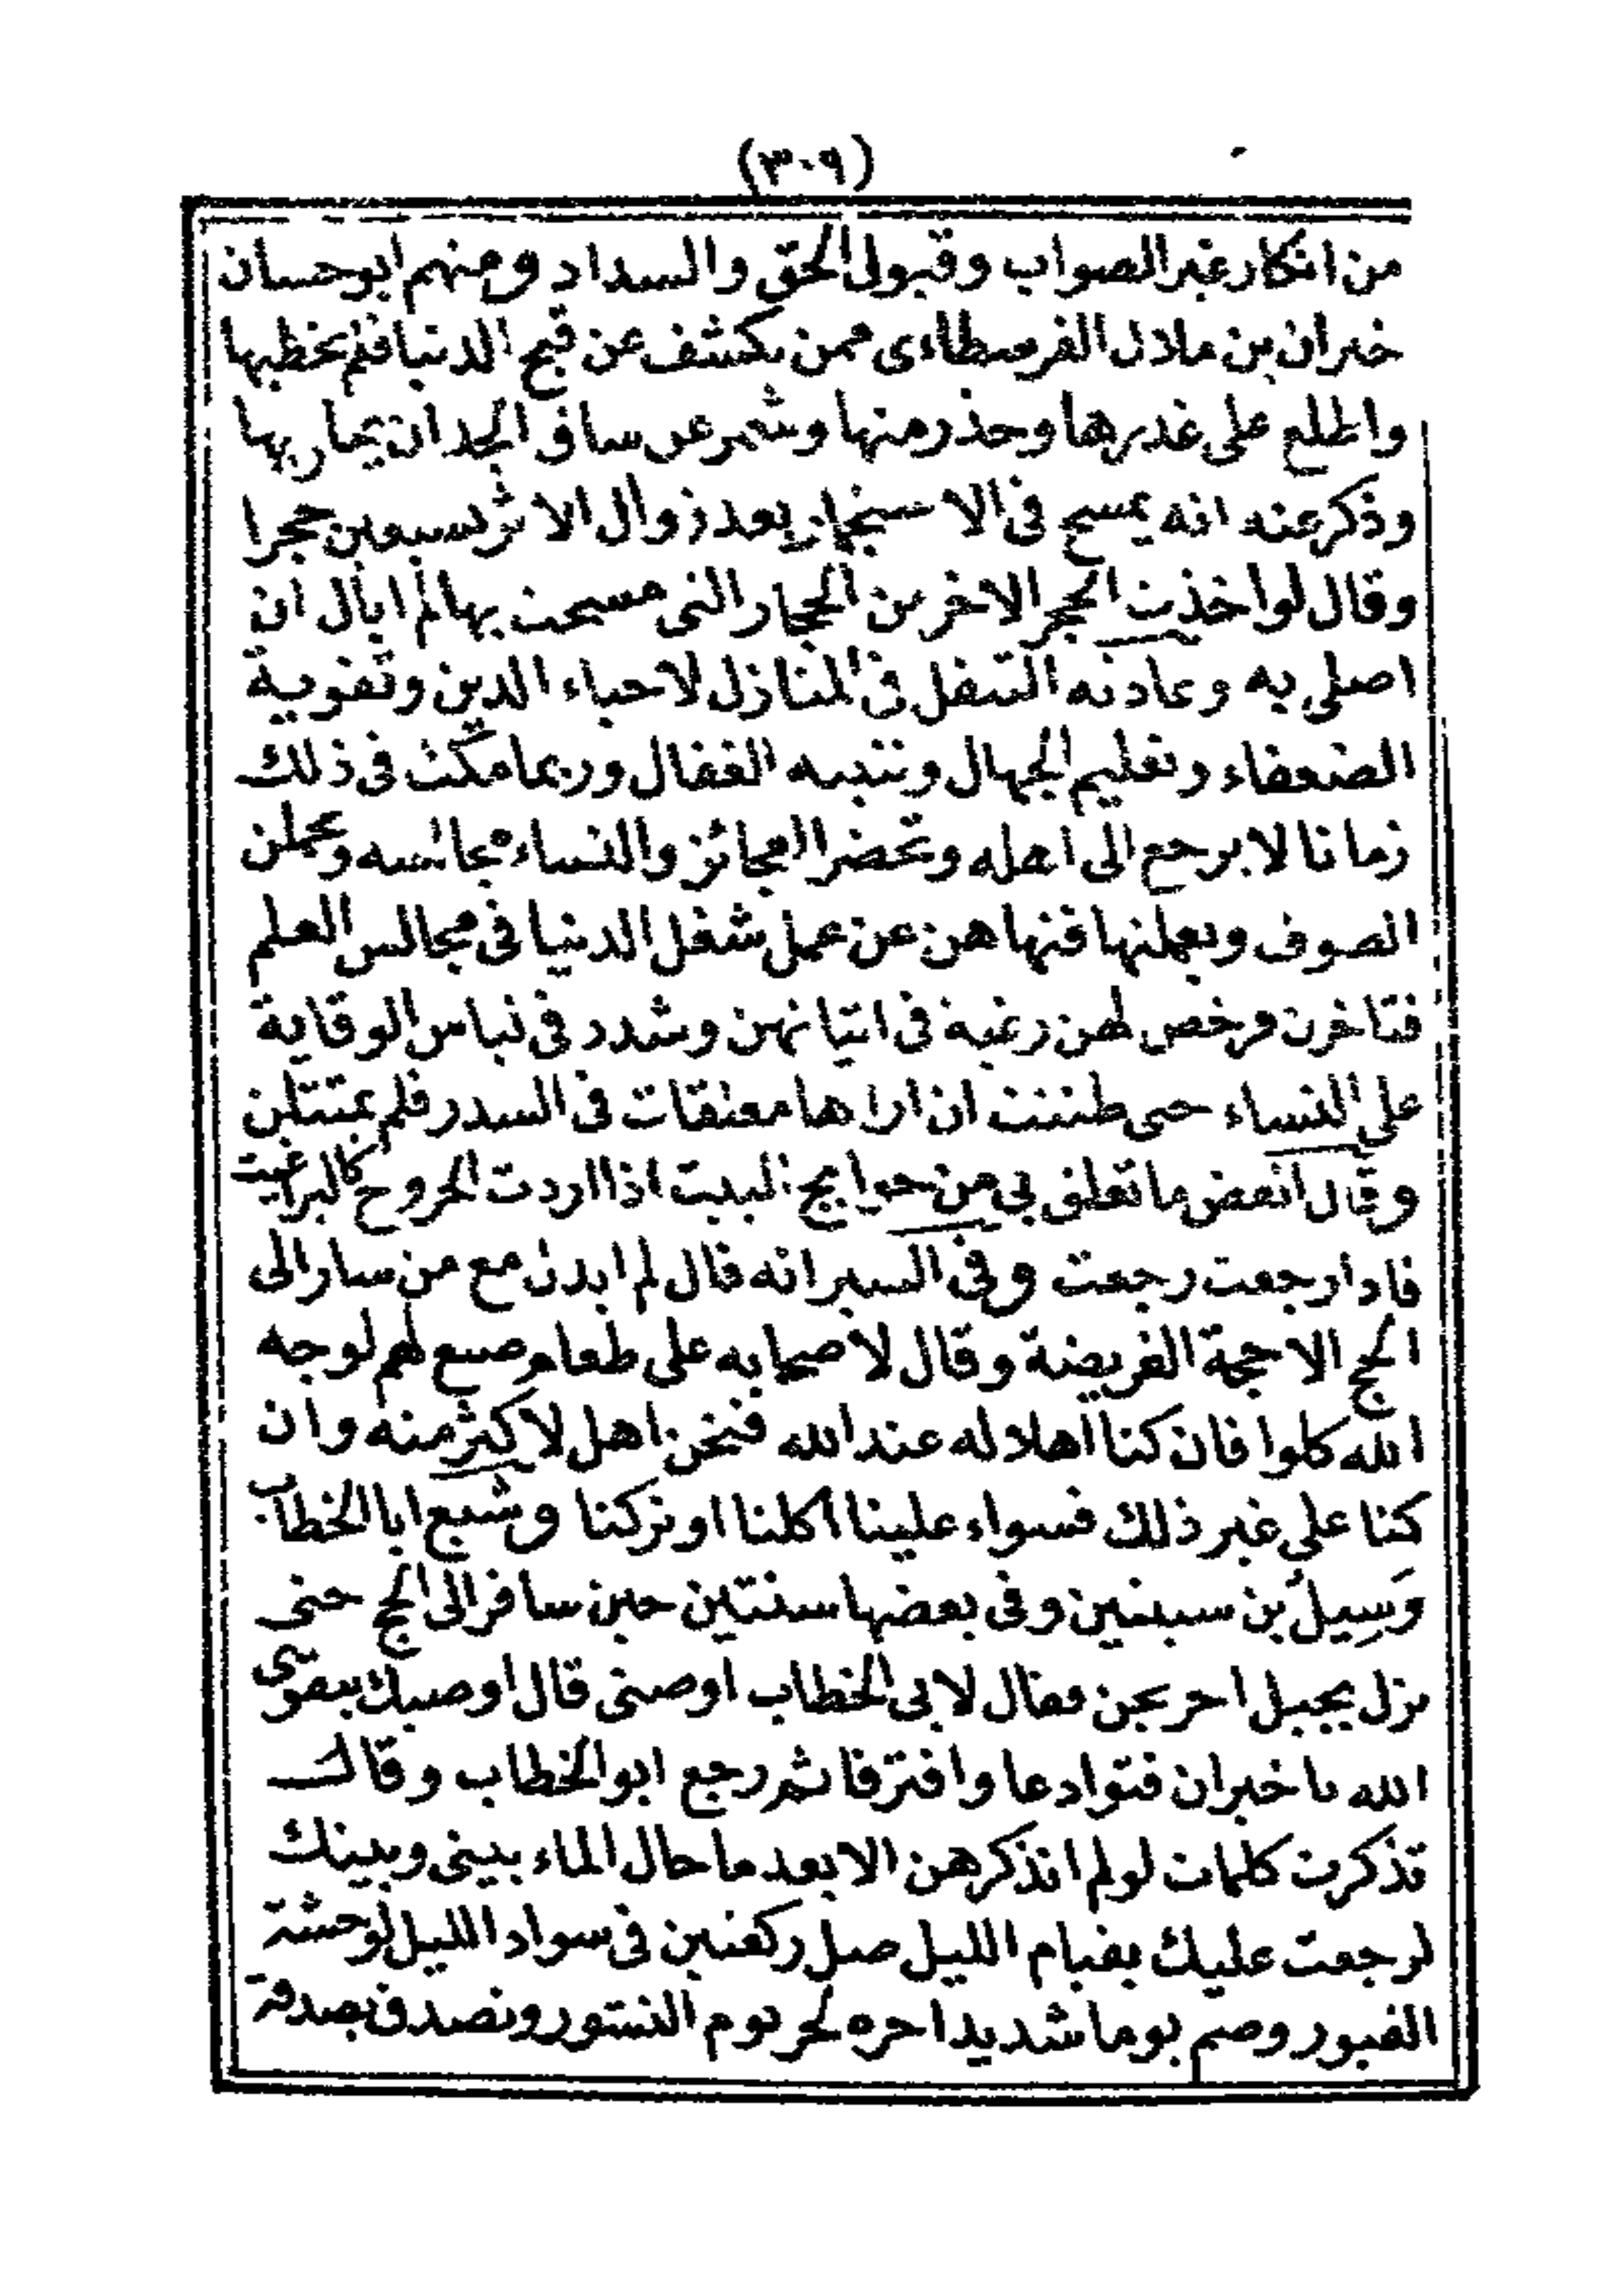 (٣٠٩)
من انكار غير الصواب وقبول الحق والسداد ومنهم ابو حسان
خيران بن ملال الفرسطاءى ممن كشف عن قبح الدنيا فلم يخطبها
واطلع على غدرها وحذر منها وشمر عن ساق الجد ان يحاربها
وذكر عنه انه يمسح فى الاستجمار بعد زوال الاثر بسبعين حجرا
وقال لو اخذت الحجر الاخر من الحجار التى مسحت بها لم ابال ان
اصلى به وعادته التنقل فى المنازل لاحياء الدين وتقوية
الضعفاء وتعليم الجهال وتنبيه الغفال وربما مكث فى ذلك
زمانا لا يرجع الى اهله وتحضر العجائز والنساء مجالسه ويحملن
الصوف ويعملنها فنهاهن عن عمل شغل الدنيا فى مجالس العلم
فتاخرن فرخص لهن رغبة فى اتيانهن وشدد فى لباس الوقاية
على النساء حتى ظننت ان اراها معلقات فى السدر فلم يمتثلن
وقال انغض ما تعلق بى من حوايج البيت اذا اردت الخروج كالبراغيث
فاذا رجعت رجعت وفى السير انه قال لم ابدن مع من سار الى
الحج الا حجة الفريضة وقال لاصحابه على طعام صنع لهم لوجه
الله كلوا فان كنا اهلا له عند الله فنحن اهل لاكثر منه وان
كنا على غير ذلك فسواء علينا اكلنا او تركنا وشيع ابا الخطاب
وَسِيلُ بن سينتين وفى بعضها سنتين حين سافر الى الحج حتى
نزل بجبل فقال لابى الخطاب اوصنى قال اوصيك بتقوى
الله يا خيران فتوادعا وافترقا ثم رجع ابو الخطاب وقال
تذكرت كلمات لو لم اتذكرهن الا بعد ما حال الماء بينى وبينك
لرجعت عليك بقيام الليل صل ركعتين فى سواد الليل لوحشة
القبور وصم يوما شديدا حره لحر يوم النشور وتصدق بصدقة